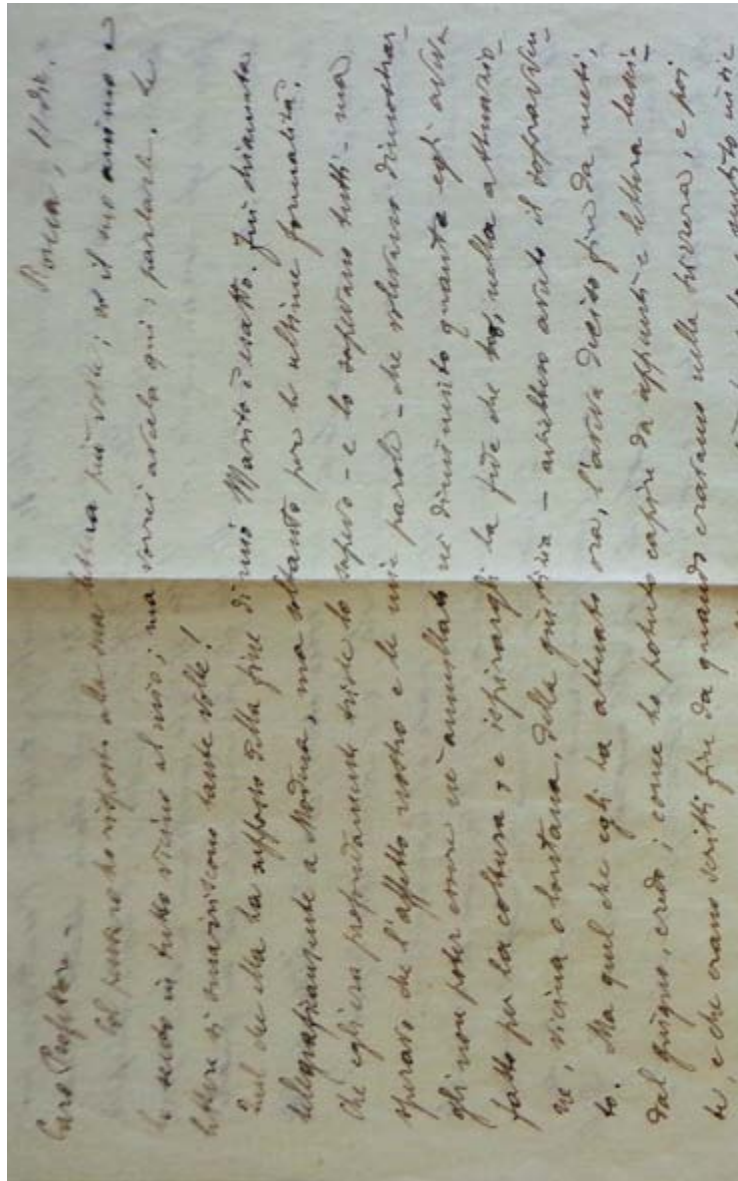 Caro Professore -
Col pensiero ho risposto alla sua lettera più volte; so il suo animo e
lo sento in tutto vicino al mio; ma vorrei averla qui, parlarle. Le
lettere si smarriscono tante volte!
Quel che Ella ha saputo della fine di mio Marito è esatto. Fui chiamata
telegraficamente a Modena, ma soltanto per le ultime formalità.
Che egli era profondamente triste lo sapevo - e lo sapevano tutti - ma
speravo che l'affetto nostro e le mie parole - che volevano dimostrar-
gli non poter essere nè annullato nè diminuito quanto egli aveva
fatto per la coltura, e ispirargli la fede che nella attuazio-
ne, vicina o lontana, della giustizia - avrebbero avuto il sopravven-
to. Ma quel che egli ha attuato ora, l'aveva deciso fin da mesi,
dal giugno, credo; come ho potuto capire da appunti e lettera lascia-
te, e che erano scritti fin da quando eravamo nella Svizzera, e poi